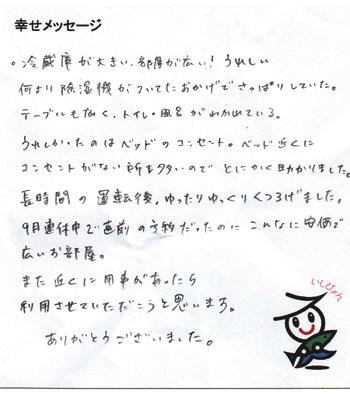 幸せメッセージ
。冷蔵庫が大きい、部屋が広い！うれしい
何より除湿機がついてたおかげでさっぱりしていた。
テーブルも広く、トイレ・風呂がわかれている。
うれしかったのはベッドのコンセント。ベッド近くに
コンセントがない所も多いのでとにかく助かりました。
長時間の運転後、ゆったりゆっくりくつろげました。
9月連休中で直前の予約だったのにこんなに安価で
広いお部屋。
また近くに用事があったら
利用させていただこうと思います。
ありがとうございました。
いしぴょん